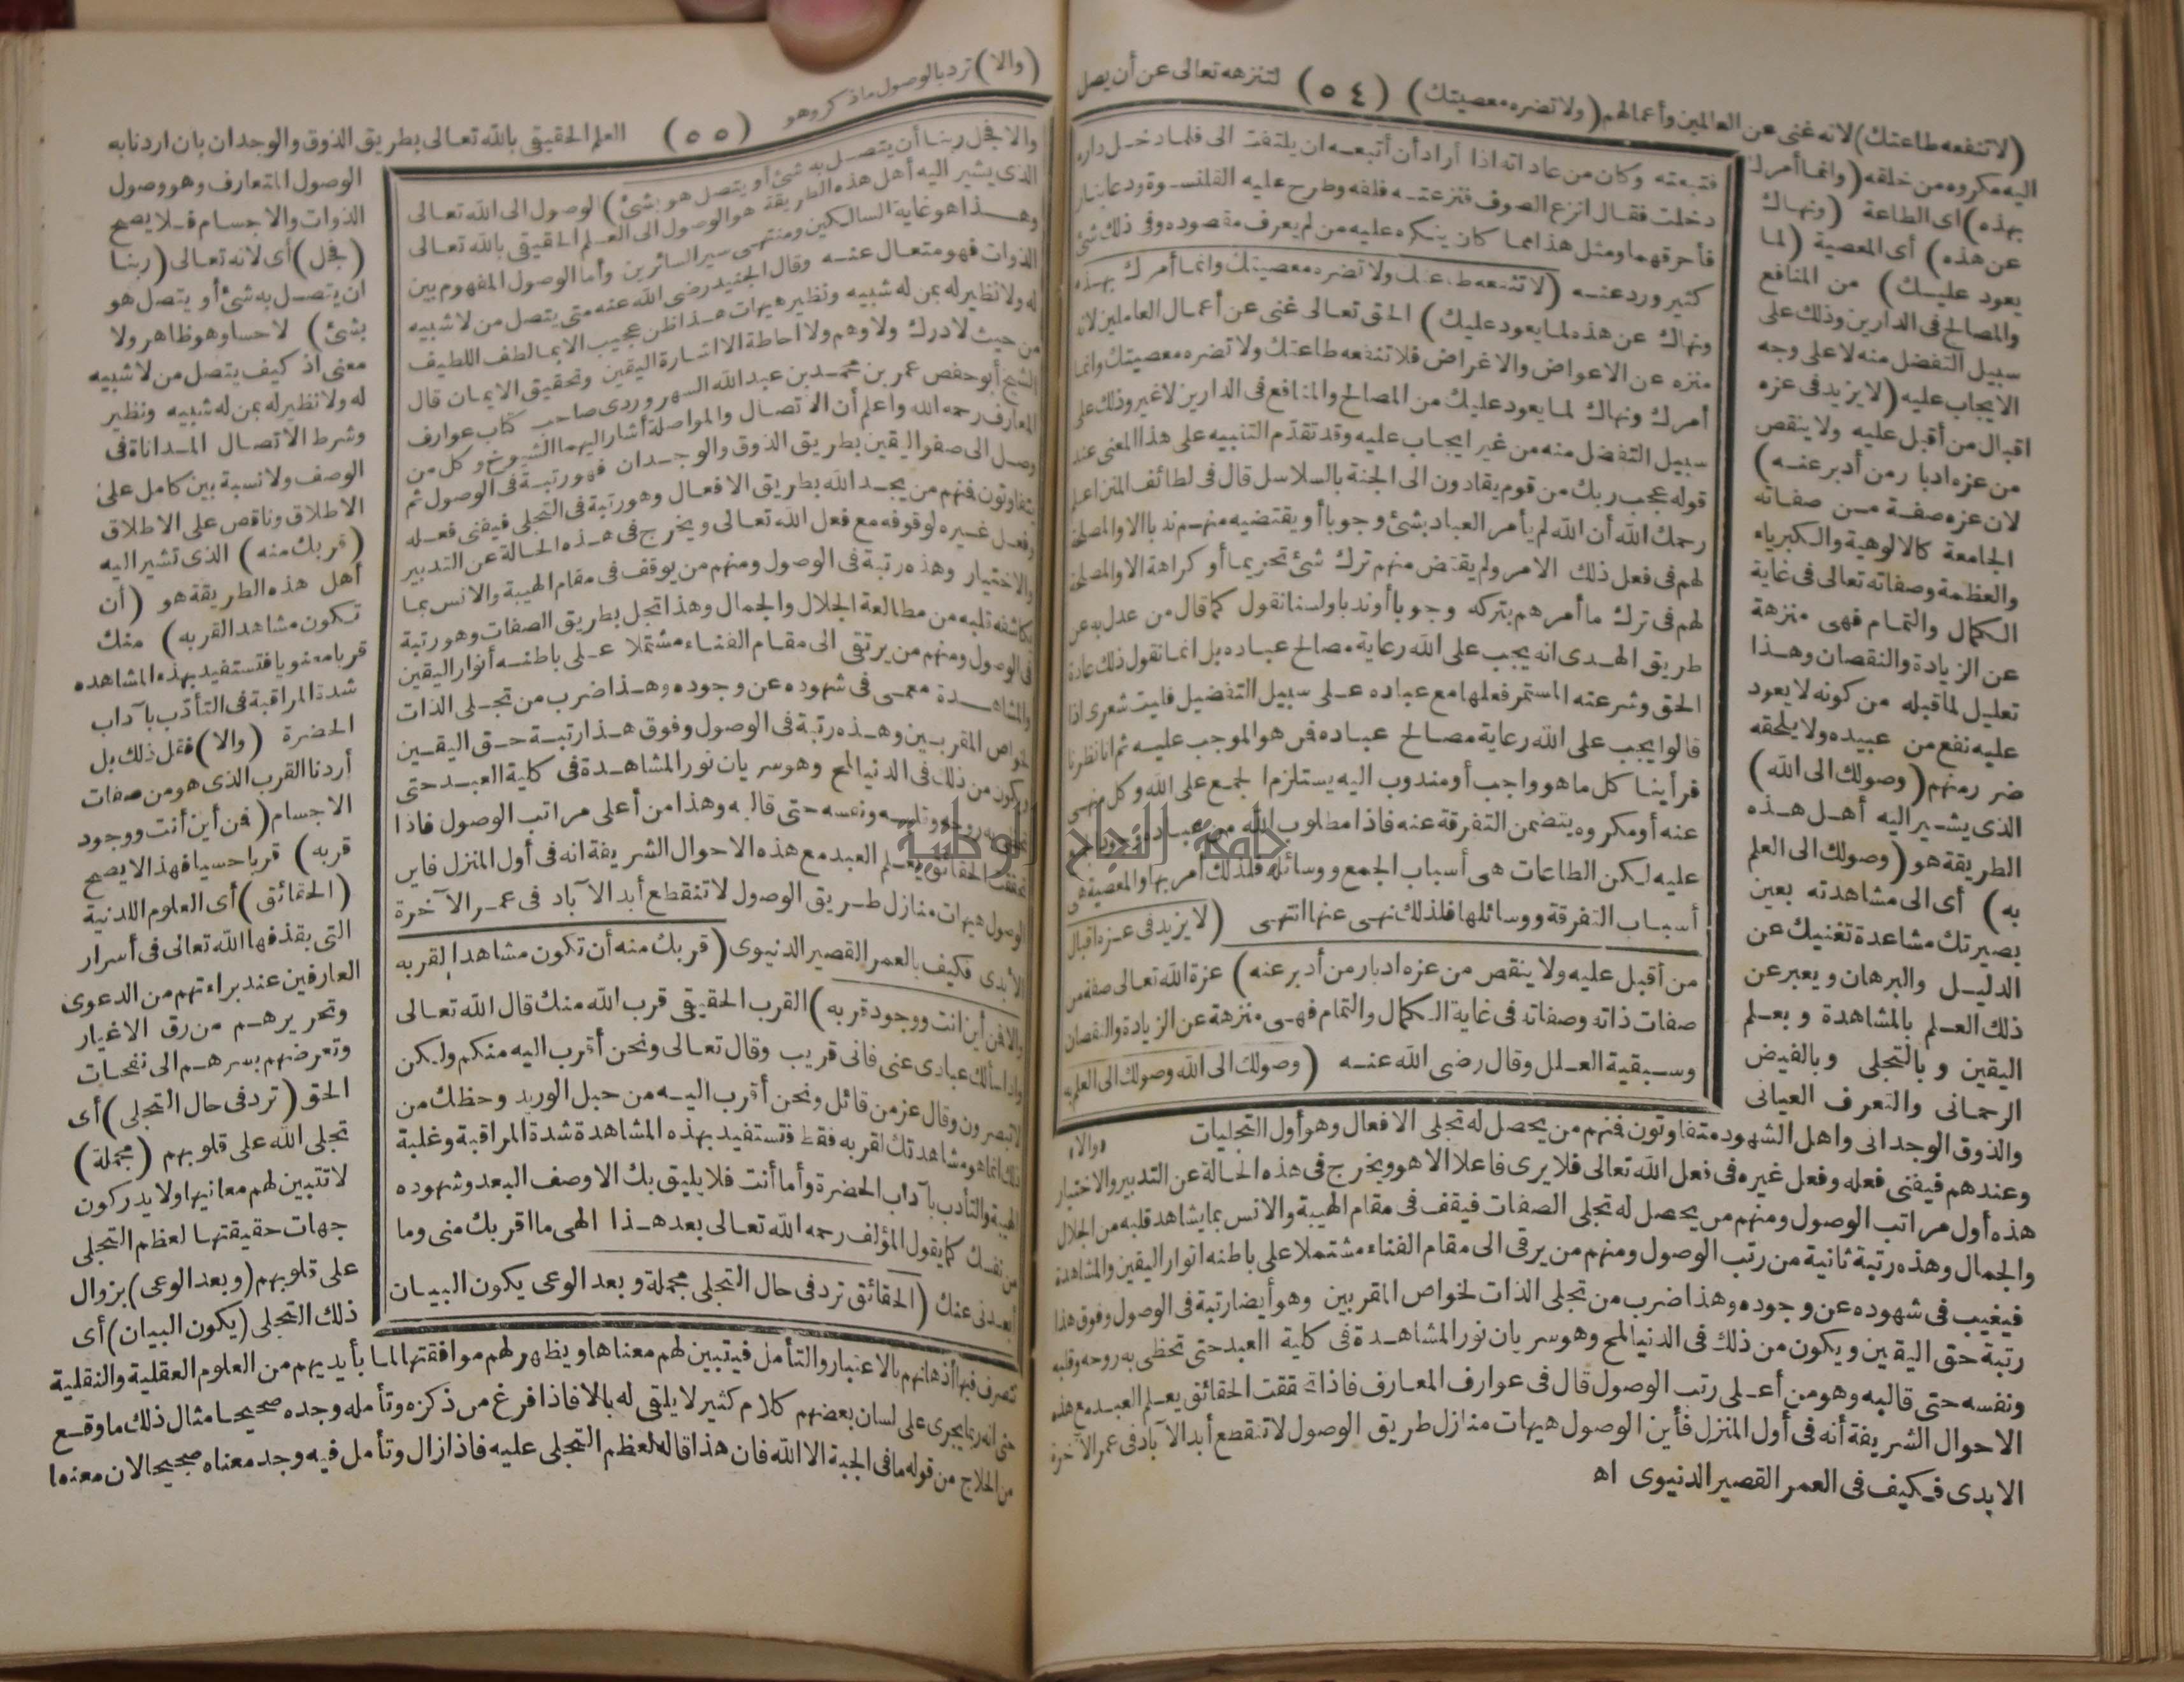 (لا تنفعه طاعتك) لانه غنى عن العالمين وأعمالهم (ولا تضره معصيتك) (٥٤) لتنزهه تعالى عن أن يصل
اليه مكروه من خلقه (وانما أمرك
بهذه) اى الطاعة (ونهاك
عن هذه) أى المعصية (لما
يعود عليك) من المنافع
والمصالح فى الدارين وذلك على
سبيل التفضل منه لا على وجه
الايجاب عليه (لا يزيد فى عزه
اقبال من أقبل عليه ولا ينقص
من عزه ادبار من أدبر عنه)
لان عزه صفة من صفاته
الجامعة كالالوهية والكبرياء
والعظمة وصفاته تعالى فى غاية
الكمال والتمام فهى منزهة
عن الزيادة والنقصان وهذا
تعليل لما قبله من كونه لا يعود
عليه نفع من عبيده ولا يلحقه
ضر رمنهم (وصولك الى الله)
الذى يشير اليه أهل هذه
الطريقة هو (وصولك الى العلم
به) أى الى مشاهدته بعين
بصيرتك مشاعدة تغنيك عن
الدليل والبرهان ويعبر عن
ذلك العلم بالمشاهدة وبعلم
اليقين وبالتجلى وبالفيض
الرحمانى والتعرف العيانى
فتبعته وكان من عاداته اذا أراد أن أتبعه ان يلتفت الى فلما دخل داره
دخلت فقال انزع الصوف فنزعته فلفه وطرح عليه القلنسوة ودعا بنار
فأحرقهما ومثل هذا انما كان ينكره عليه من لم يعرف مقصوده وفى ذلك شئ
كثير ورد عنه (لا تنفعه طاعتك ولا تضره معصيتك وانما أمرك بهذه
ونهاك عن هذه لما يعود عليك) الحق تعالى غنى عن أعمال العاملين لانه
منزه عن الاعواض والاغراض فلا تنفعه طاعتك ولا تضره معصيتك وانما
أمرك ونهاك لما يعود عليك من المصالح والمنافع فى الدارين لا غير وذلك على
سبيل التفضل منه من غير ايجاب عليه وقد تقدّم التنبيه على هذا المعنى عند
قوله عجب ربك من قوم يقادون الى الجنة بالسلاسل قال فى لطائف المنن اعلم
رحمك الله أن الله لم يأمر العباد بشئ وجوبا أو يقتضيه منهم ندبا الا والمصلحة
لهم فى فعل ذلك الامر ولم يقتض منهم ترك شئ تحريما أو كراهة الا والمصلحة
لهم فى ترك ما أمرهم بتركه وجوبا أو ندبا ولسنا نقول كما قال من عدل به عن
طريق الهدى انه يجب على الله رعاية مصالح عباده بل انما نقول ذلك عادة
الحق وشرعته المستمر فعلها مع عباده على سبيل التفضيل فليت شعرى اذا
قالوا يجب على الله رعاية مصالح عباده فمن هو الموجب عليه ثم انا نظرنا
فرأينا كل ما هو واجب أو مندوب اليه يستلزم الجمع على الله وكل منهى
عنه أو مكروه يتضمن التفرقة عنه فاذا مطلوب الله من عباده وجود الجمع
عليه لكن الطاعات هى أسباب الجمع ووسائله فلذلك أمر بها والمعصية هى
أسباب التفرقة ووسائلها فلذلك نهى عنها انتهى (لا يزيد فى عزه اقبال
من أقبل عليه ولا ينقص من عزه ادبار من أدبر عنه) عزة الله تعالى صفة من
صفات ذاته وصفاته فى غاية الكمال والتمام فهى منزهة عن الزيادة والنقصان
وسبقية العلل وقال رضى الله عنه (وصولك الى الله وصولك الى العلم به
والذوق الوجدانى واهل الشهود متفاوتون فمنهم من يحصل له تجلى الافعال وهو أول التجليات «والا»
وعندهم فيفنى فعله وفعل غيره فى فعل الله تعالى فلا يرى فاعلا الا هو ويخرج فى هذه الحالة عن التدبير والاختيار
هذه أول مراتب الوصول ومنهم من يحصل له تجلى الصفات فيقف فى مقام الهيبة والانس بما يشاهد قلبه من الجلال
والجمال وهذه رتبة ثانية من رتب الوصول ومنهم من يرقى الى مقام الفناء مشتملا على باطنه انوار اليقين والمشاهدة
فيغيب فى شهوده عن وجوده وهذا ضرب من تجلى الذات لخواص المقربين وهو أيضا رتبة فى الوصول وفوق هذا
رتبة حق اليقين ويكون من ذلك فى الدنيا لمح وهو سريان نور المشاهدة فى كلية العبد حتى تحظى به روحه وقلبه
ونفسه حتى قالبه وهو من أعلى رتب الوصول قال فى عوارف المعارف فاذا تحققت الحقائق يعلم العبد مع هذه
الاحوال الشريفة أنه فى أول المنزل فأين الوصول هيهات منازل طريق الوصول لا تنقطع أبد الآباد فى عمر الآخرة
الابدى فكيف فى العمر القصير الدنيوى اه
(والا) ترد بالوصول ما ذكر وهو (٥٥) العلم الحقيقى بالله تعالى بطريق الذوق والوجدان بان اردنا به
الوصول المتعارف وهو وصول
الذوات والاجسام فلا يصح
(فجل) أى لانه تعالى (ربنا
ان يتصل به شئ أو يتصل هو
بشئ) لا حسا وهو ظاهر ولا
معنى اذ كيف يتصل من لا شبيه
له ولا نظير له بمن له شبيه ونظير
وشرط الاتصال المداناة فى
الوصف ولا نسبة بين كامل على
الاطلاق وناقص على الاطلاق
(قربك منه) الذى تشير اليه
أهل هذه الطريقة هو (أن
تكون مشاهدا لقربه) منك
قربا معنويا فتستفيد بهذه المشاهده
شدة المراقبة فى التأدّب بآداب
الحضرة (والا) فقل ذلك بل
أردنا القرب الذى هو من صفات
الاجسام (فمن أين أنت ووجود
قربه) قربا حسيا فهذا لا يصح
(الحقائق) أى العلوم اللدنية
التى يقذفها الله تعالى فى أسرار
العارفين عند براءتهم من الدعوى
وتحريرهم من رق الاغيار
وتعرضهم بسرهم الى نفحات
الحق (ترد فى حال التجلى) أى
تجلى الله على قلوبهم (مجملة)
لا تتبين لهم معانيها ولا يدركون
جهات حقيقتها لعظم التجلى
على قلوبهم (وبعد الوعى) بزوال
ذلك التجلى (يكون البيان) أى
والا فجل ربنا أن يتصل به شئ أو يتصل هو بشئ) الوصول الى الله تعالى
الذى يشير اليه أهل هذه الطريقة هو الوصول الى العلم الحقيقى بالله تعالى
وهذا هو غاية السالكين ومنتهى سير السائرين وأما الوصول المفهوم بين
الذوات فهو متعال عنه وقال الجنيد رضى الله عنه متى يتصل من لا شبيه
له ولا نظير له بمن له شبيه ونظير هيهات هذا ظن عجيب الا بما لطف اللطيف
من حيث لا درك ولا وهم ولا احاطة الا اشارة اليقين وتحقيق الايمان قال
الشيخ أبو حفص عمر بن محمد بن عبد الله السهروردى صاحب كتاب عوارف
المعارف رحمه الله واعلم أن الاتصال والمواصلة أشار اليهما الشيوخ وكل من
وصل الى صفو اليقين بطريق الذوق والوجدان فهو رتبة فى الوصول ثم
يتفاوتون فمنهم من يجد الله بطريق الافعال وهو رتبة فى التجلى فيفنى فعله
وفعل غيره لوقوفه مع فعل الله تعالى ويخرج فى هذه الحالة عن التدبير
والاختيار وهذه رتبة فى الوصول ومنهم من يوقف فى مقام الهيبة والانس بما
يكاشفه قلبه من مطالعة الجلال والجمال وهذا تجل بطريق الصفات وهو رتبة
فى الوصول ومنهم من يرتقى الى مقام الفناء مشتملا على باطنه أنوار اليقين
والمشاهدة معمى فى شهوده عن وجوده وهذا ضرب من تجلى الذات
لخواص المقربين وهذه رتبة فى الوصول وفوق هذا رتبة حق اليقين
ويكون من ذلك فى الدنيا لمح وهو سريان نور المشاهدة فى كلية العبد حتى
به روحه وقلبه ونفسه حتى قالبه وهذا من أعلى مراتب الوصول فاذا
تحققت الحقائق يعلم العبد مع هذه الاحوال الشريفة انه فى أول المنزل فاين
الوصول هيهات منازل طريق الوصول لا تنقطع أبد الآباد فى عمر الآخرة
الأبدى فكيف بالعمر القصير الدنيوى (قربك منه أن تكون مشاهدا لقربه
والا فمن أين أنت ووجود قربه) القرب الحقيقى قرب الله منك قال الله تعالى
واذا سألك عبادى عنى فانى قريب وقال تعالى ونحن أقرب اليه منكم ولكن
لا تبصرون وقال عز من قائل ونحن أقرب اليه من حبل الوريد وحظك من
ذلك انما هو مشاهدتك لقربه فقط فتستفيد بهذه المشاهدة شدة المراقبة وغلبة
الهيبة والتأدب بآداب الحضرة وأما أنت فلا يليق بك الا وصف البعد وشهوده
من نفسك كما يقول المؤلف رحمه الله تعالى بعد هذا الهى ما اقربك منى وما
أبعدنى عنك (الحقائق ترد فى حال التجلى مجملة وبعد الوعى يكون البيان
تتصرف فيها أذهانهم بالاعتبار والتأمل فيتبين لهم معناها ويظهر لهم موافقتها لما بأيديهم من العلوم العقلية والنقلية
حتى انه ربما يجرى على لسان بعضهم كلام كثير لا يلقى له بالا فاذا فرغ من ذكره وتأمله وجده صحيحا مثال ذلك ما وقع
من الحلاج من قوله ما فى الجبة الا الله فان هذا قاله لعظم التجلى عليه فاذا زال وتأمل فيه وجد معناه صحيحا لان معنه ا
جامعة النجاح الوطنية